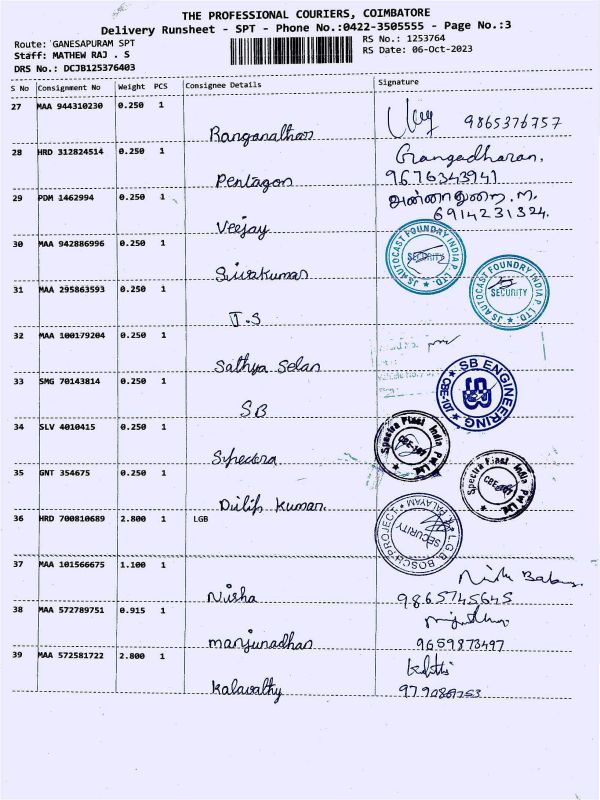 THE PROFESSIONAL COURIERS, COIMBATORE
Delivery Runsheet - SPT - Phone No.:0422-3505555 - Page No.:3
Route: GANESAPURAM SPT
RS No.: 1253764
Staff: MATHEW RAJ . S
RS Date: 06-Oct-2023
DRS No.: DCJB125376403
S No Consignment No Weight PCS Consignee Details Signature
27 MAA 944310230 0.250 1
Ranganathan 9865376757
28 HRD 312824514 0.250 1
Gangadharan.
Pentagon 9676343941
29 PDM 1462994 0.250 1
அண்ணாதுரை.M.
Veejay 6914231324.
30 MAA 942886996 0.250 1
JS AUTOCAST FOUNDRY INDIA P. LTD.
SECURITY
Sivakumar
JS AUTOCAST FOUNDRY INDIA P. LTD.
SECURITY
31 MAA 295863593 0.250 1
J.S
32 MAA 100179204 0.250 1
Sathya Selan
33 SMG 70143814 0.250 1
SB ENGINEERING
CBE-107
SB
34 SLV 4010415 0.250 1
Spectra Plast India Pvt Ltd
CBE-107
Spectra
35 GNT 354675 0.250 1
Spectra Plast India Pvt Ltd
CBE-107
Dilip Kumar.
36 HRD 700810689 2.800 1 LGB
L.G.B. BOSCH PROJECT
SECURITY
37 MAA 101566675 1.100 1
Nisha 9865745645
38 MAA 572789751 0.915 1
manjunadhan 9659873497
39 MAA 572581722 2.800 1
Kalavathy